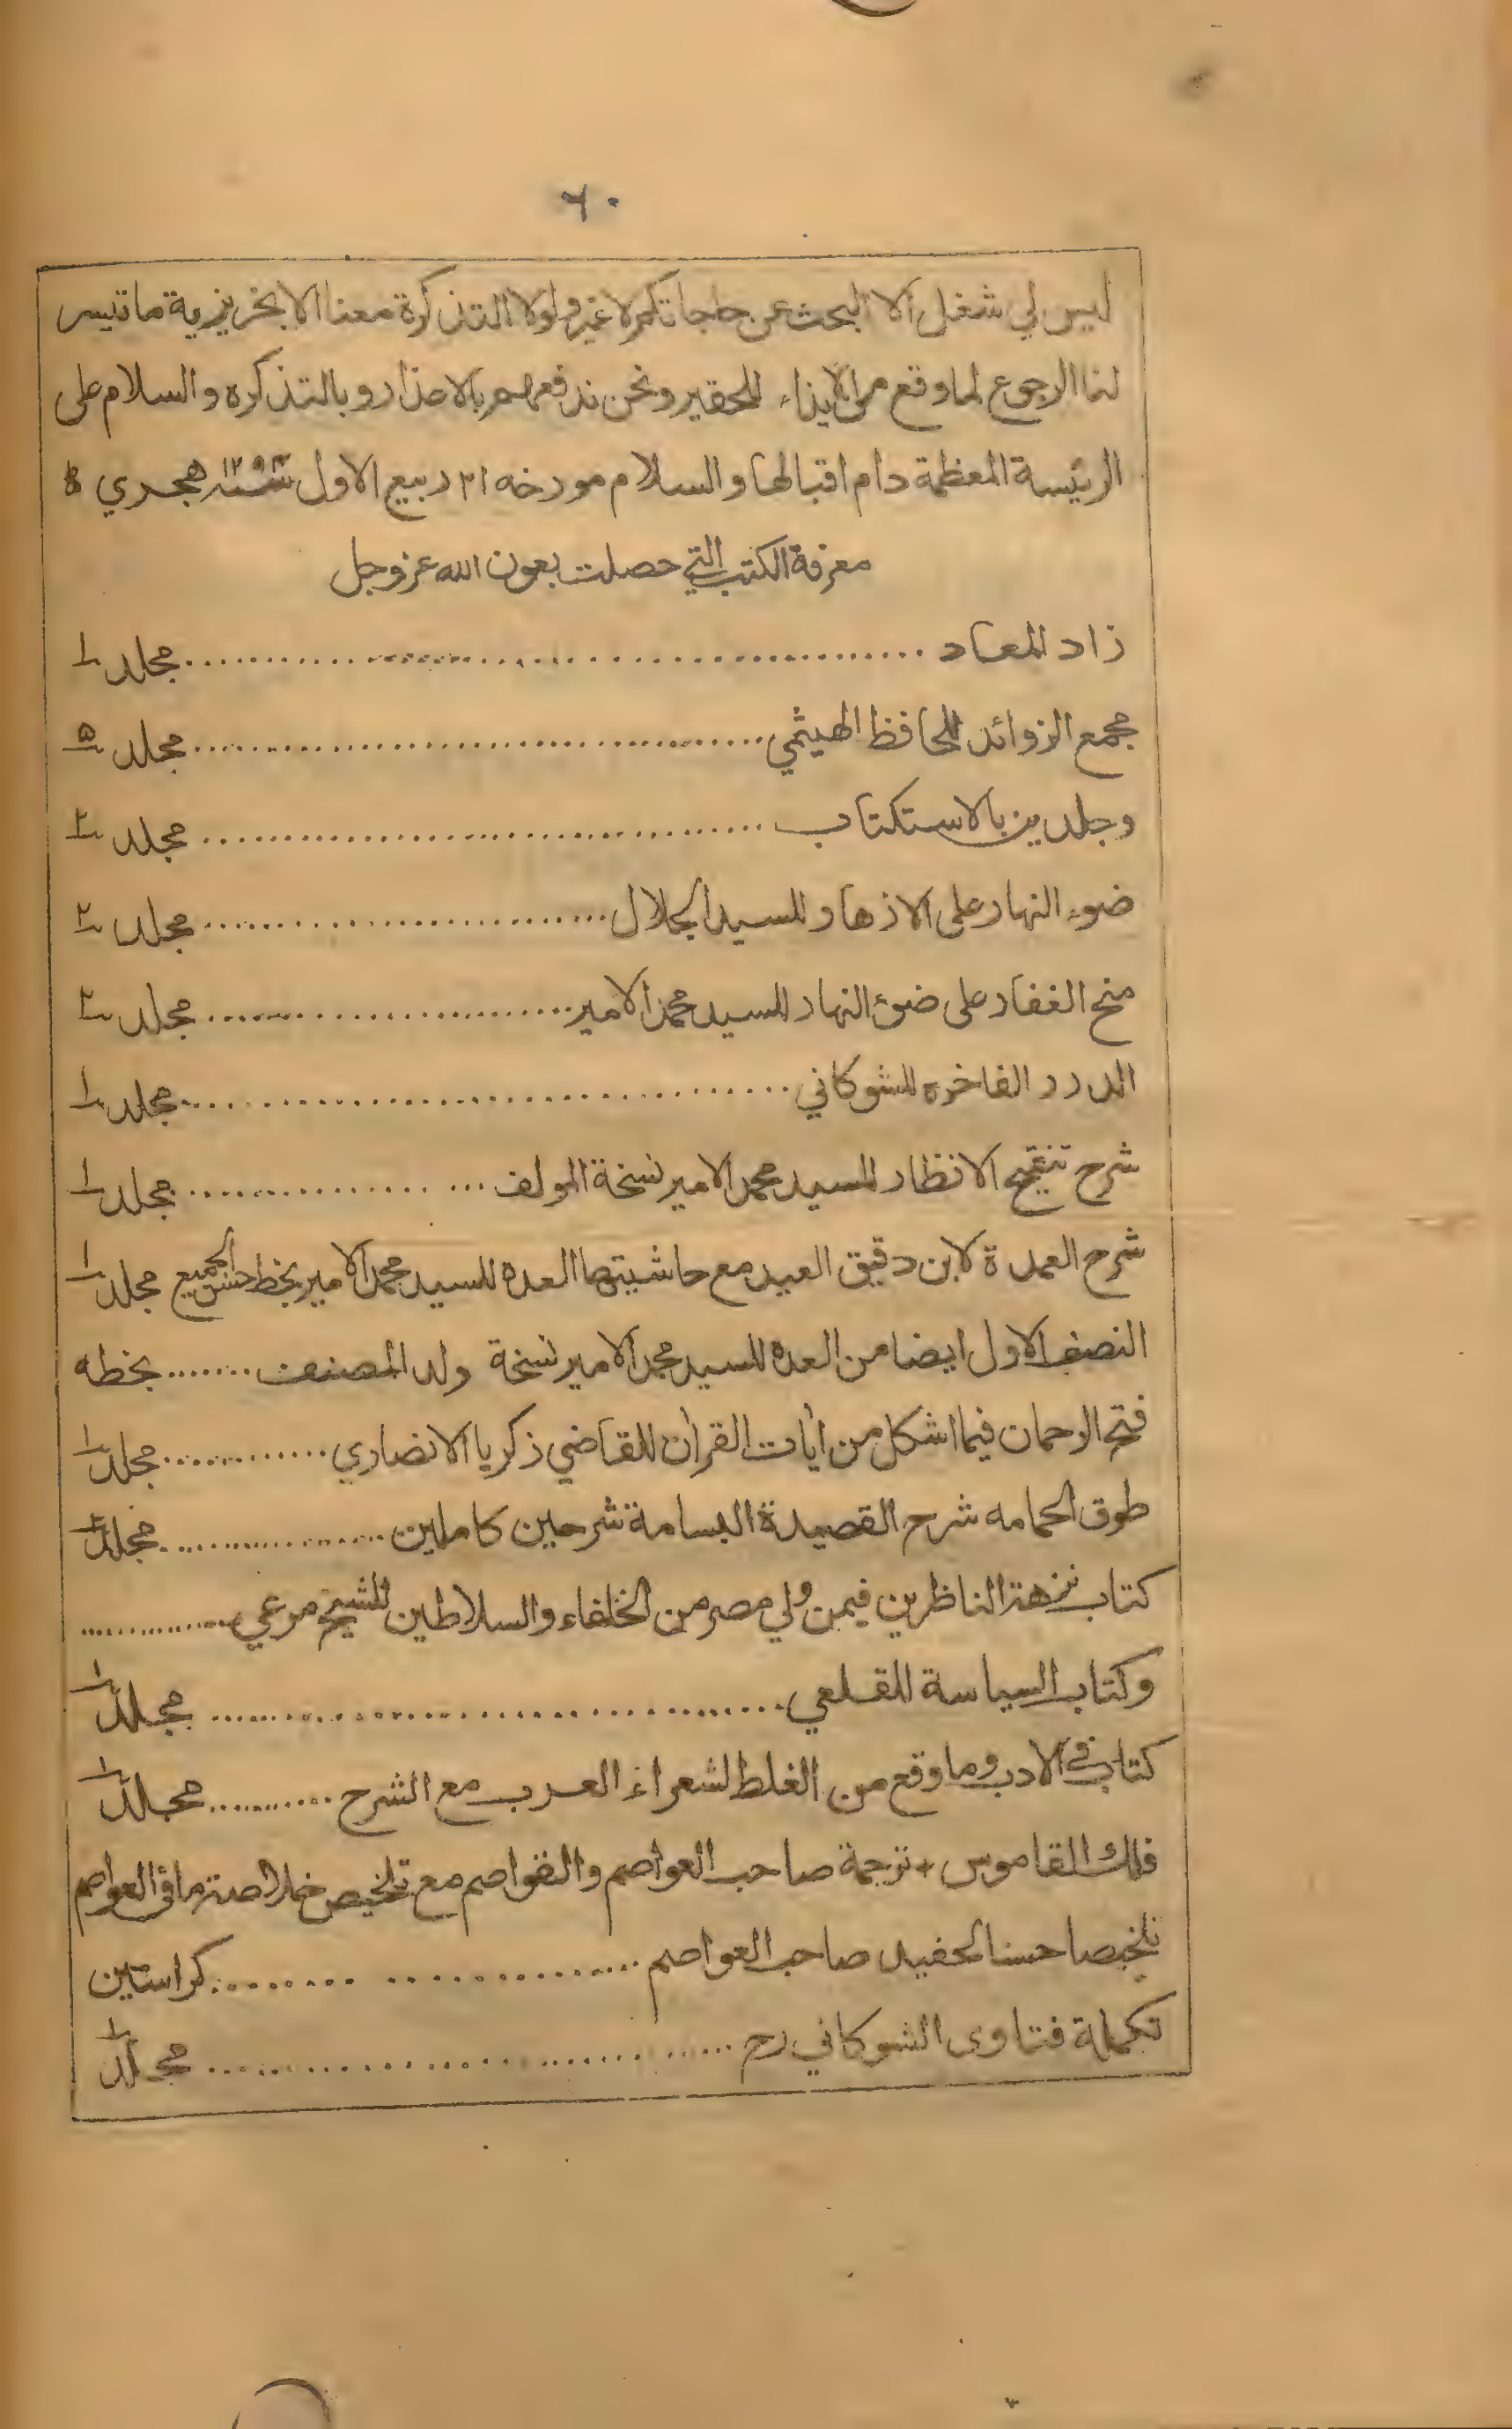 ٦٠
ليس لي شغل الا البحث عن حاجاتكم لا غير ولولا التذكرة معنا الا بخريزية ما تيسر
لنا الرجوع لما وقع من الايذاء للحقير ونحن ندفعهم بالاعذار وبالتذكره والسلام على
الرئيسة المعظمة دام اقبالها والسلام مورخه ٢١ ربيع الاول سنه ١٢٩٣ هجري
معرفة الكتب التي حصلت بعون الله عز وجل
زاد المعاد .......... مجلد ١
مجمع الزوائد للحافظ الهيثمي .......... مجلد ٥
وجلدين بالاستكتاب .......... مجلد ٢
ضوء النهار على الازهار للسيد الجلال .......... مجلد ٢
منح الغفار على ضوء النهار للسيد محمد الامير .......... مجلد ٢
الدرر الفاخره للشوكاني .......... مجلد ١
شرح تنقيح الانظار للسيد محمد الامير نسخة المولف .......... مجلد ١
شرح العمدة لابن دقيق العيد مع حاشيتها العده للسيد محمد الامير بخط حسن الجميع مجلد ١
النصف الاول ايضا من العده للسيد محمد الامير نسخة ولد المصنف ........ بخطه
فتح الرحمان فيما اشكل من أيات القرأن للقاضي زكريا الانصاري .......... مجلد ١
طوق الحمامه شرح القصيدة البسامة شرحين كاملين .......... مجلد ٢
كتاب نزهة الناظرين فيمن ولي مصر من الخلفاء والسلاطين للشيخ مرعي ..........
وكتاب السياسة للقلعي .......... مجلد ١
كتاب في الادب وما وقع من الغلط لشعراء العرب مع الشرح .......... مجلد ١
فلك القاموس + ترجمة صاحب العواصم والقواصم مع تلخيص خلاصة ما في العواصم
تلخيصا حسنا لحفيد صاحب العواصم .......... كراستين
تكملة فتاوى الشوكاني رح .......... مجلد ١